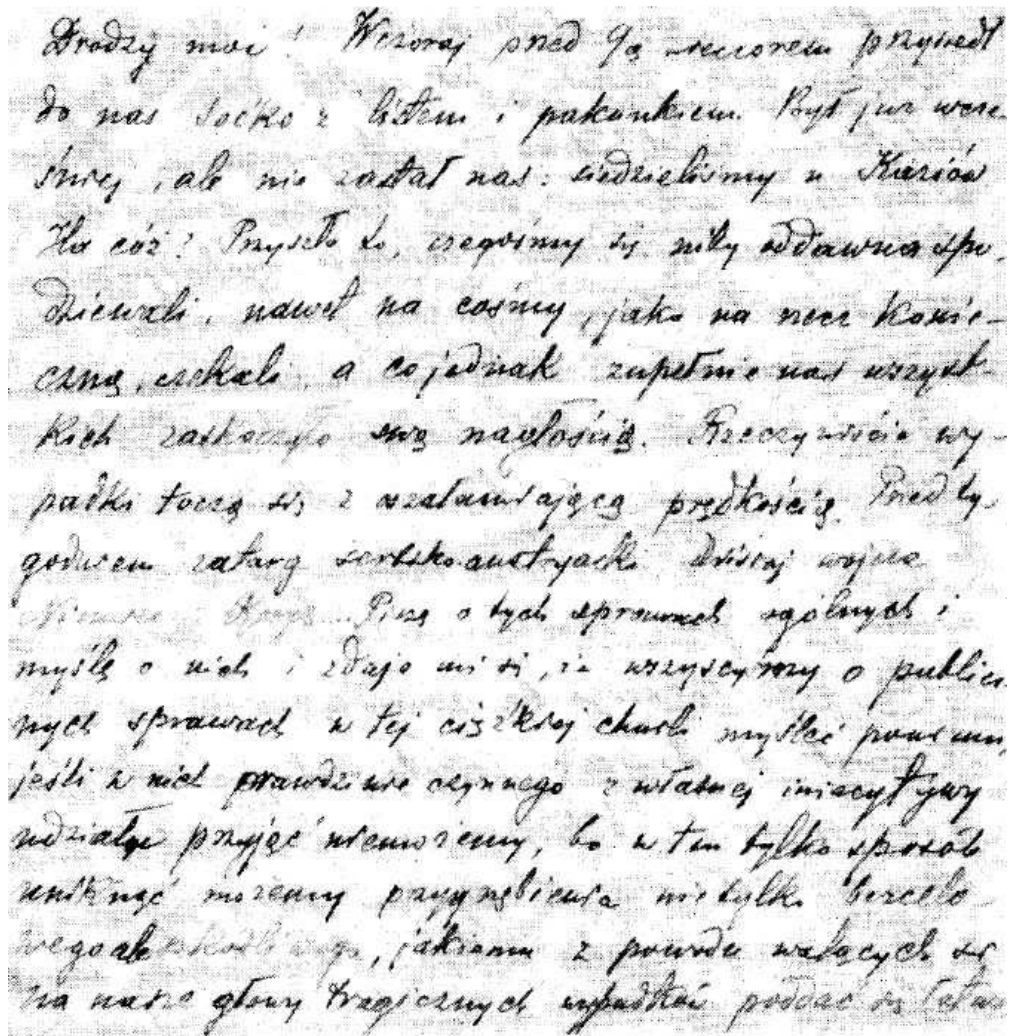 Drodzy moi! Wczoraj przed 9ą wieczorem przyszedł
do nas Soćko z listem i pakunkiem. Był już wcze-
śniej, ale nie zastał nas: siedzieliśmy u Kaziów
Ha cóż? Przyszło to, czegośmy się niby oddawna spo-
dziewali, nawet na cośmy, jako na rzecz konie-
czną, czekali, a co jednak zupełnie nas wszyst-
kich zaskoczyło swą nagłością. Rzeczywiście wy-
padki toczą się z oszałamiającą prędkością. Przed ty-
godniem zatarg serbsko-austryacki. Dzisiaj wojna
Piszę o tych sprawach ogólnych i
myślę o nich i zdaje mi się, że wszyscyśmy o publicz-
nych sprawach w tej ciężkiej chwili myśleć powinni,
jeśli w nich prawdziwie czynnego z własnej inicyatywy
udziału przyjąć niemożemy, bo w ten tylko sposób
uniknąć możemy przygnębienia nietylko bezcelo-
wego ale szkodliwego, jakiemu z powodu walących się
na nasze głowy tragicznych wypadków poddać się łatwo